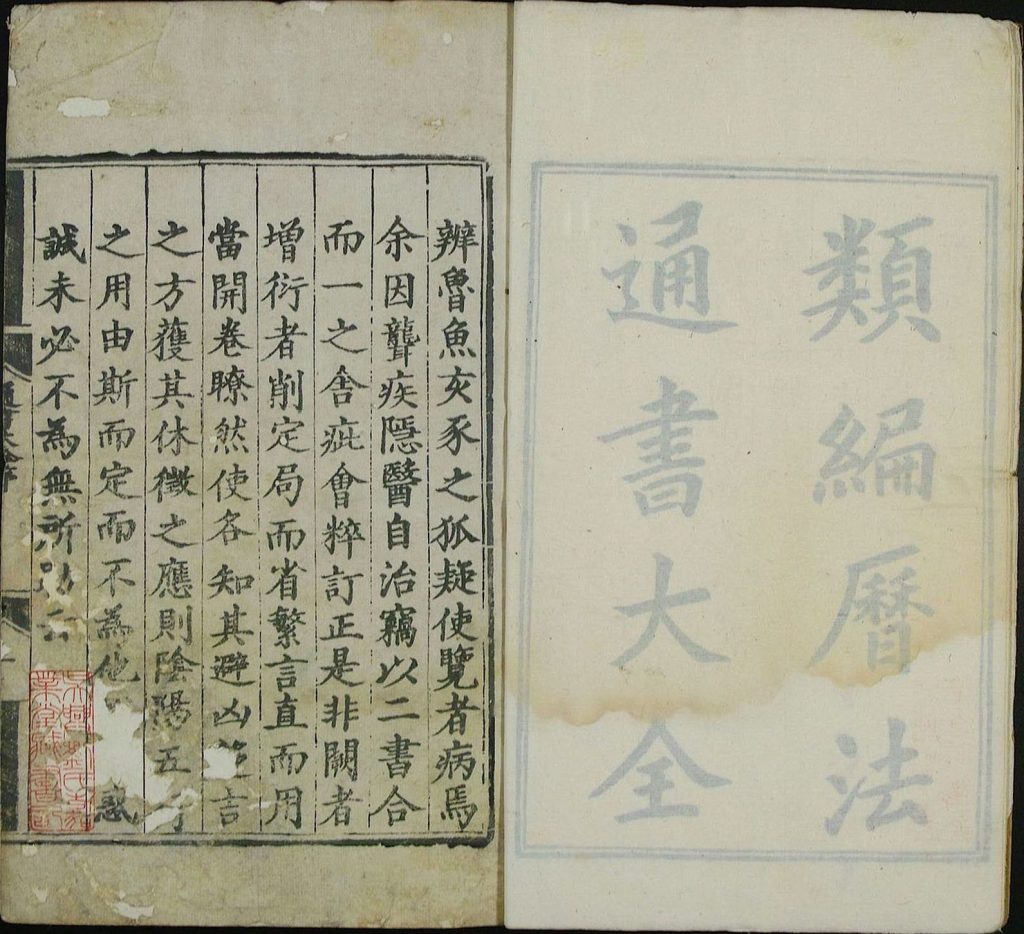 類編曆法
通書大全
辨魯魚亥豕之狐疑使覽者病焉
余因聾疾隱醫自治竊以二書合
而一之舍疵會粹訂正是非闕者
增衍者削定局而省繁言直而用
當開卷瞭然使各知其避凶言
之方獲其休徵之應則陰陽五行
之用由斯而定而不為他惑
誠未必不為無所云